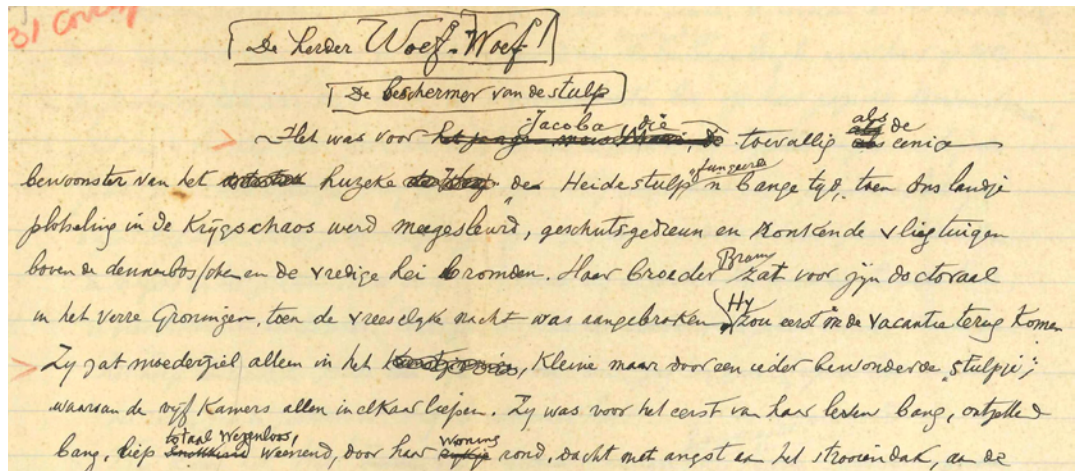 De herder Woef-Woef!
De beschermer van de stulp
Het was voor Jacoba, die toevallig als de eenige
bewoonster van het huzeke "de Heidestulp" fungeerde 'n bange tijd, toen ons landje
plotseling in de Krijgschaos werd meegesleurd, geschutsgedreun en ronkende vliegtuigen
boven de dennenbosschen en de vredige hei bromden. Haar broeder Bram zat voor zijn doctoraal
in het verre Groningen, toen de vreeselijke nacht was aangebroken. Hy zou eerst in de vacantie terug komen
Zy zat moederziel alleen in het, kleine maar door een ieder bewonderde "stulpje",
waarvan de vijf Kamers allen in elkaar liepen. Zy was voor het eerst van haar leven bang, ontzettend
bang, liep totaal wezenloos, weenend, door haar woning rond, dacht met angst aan het strooiendak, aan de